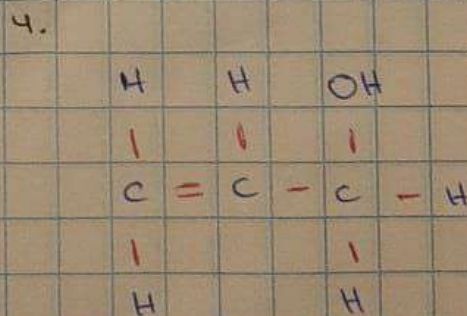 4.
H H OH
| | |
C = C - C - H
| |
H H